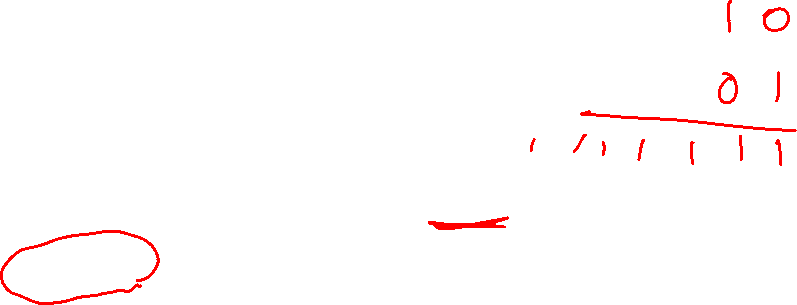 1 0
0 1
1 1 1 1 1 1 1